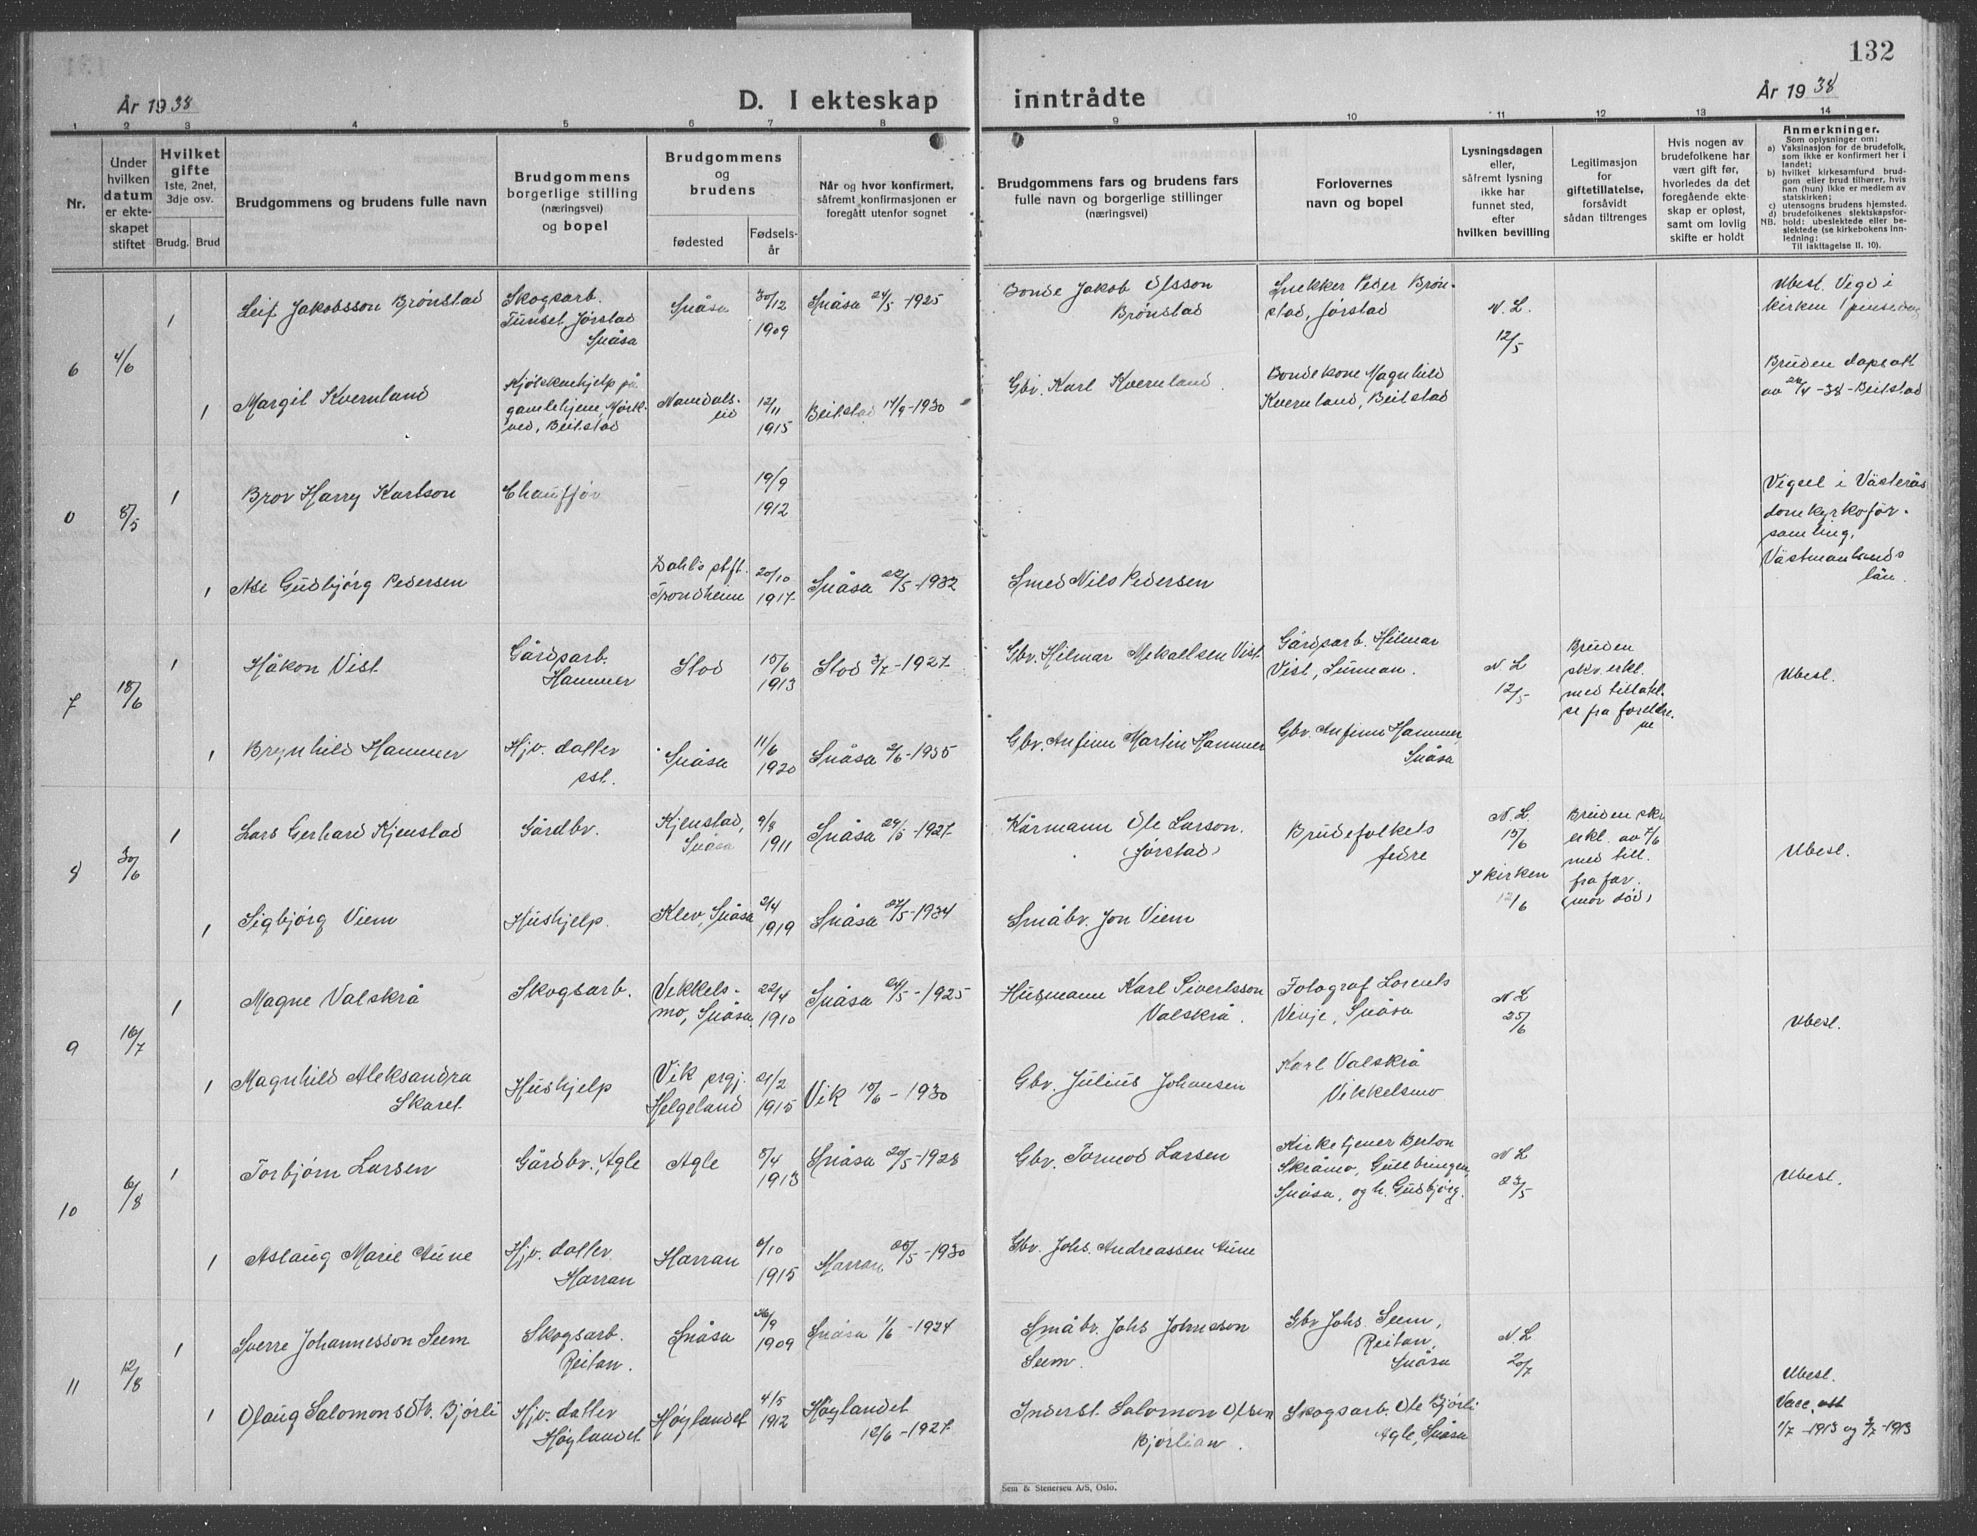 132
År 1938
D. I ekteskap inntrådte
År 1938
1 2 3 4 5 6 7 8 9 10 11 12 13 14
Nr.
Under hvilken datum er ekteskapet stiftet
Hvilket gifte 1ste, 2net, 3dje osv.
Brudg. Brud
Brudgommens og brudens fulle navn
Brudgommens borgerlige stilling (næringsvei) og bopel
Brudgommens og brudens
fødested
Fødselsår
Når og hvor konfirmert, såfremt konfirmasjonen er foregått utenfor sognet
Brudgommens fars og brudens fars fulle navn og borgerlige stillinger (næringsvei)
Forlovernes navn og bopel
Lysningsdagen eller, såfremt lysning ikke har funnet sted, efter hvilken bevilling
Legitimasjon for giftetillatelse, forsåvidt sådan tiltrenges
Hvis nogen av brudefolkene har vært gift før, hvorledes da det foregående ekteskap er opløst, samt om lovlig skifte er holdt
Anmerkninger.
Som oplysninger om:
a) Vaksinasjon for de brudefolk, som ikke er konfirmert her i landet;
b) hvilket kirkesamfund brudgom eller brud tilhører, hvis han (hun) ikke er medlem av statskirken;
c) utensogns brudens hjemsted.
d) brudefolkenes slektskapsforhold: ubeslektede eller beslektede (se kirkebokens innledning;
NB.
Til iakttagelse II. 10).
6
4/6
1
Leif Jakobsson Brønstad
Skogsarb.
Tunset, Jørstad
Snåsa
Snåsa
30/12
1909
Snåsa 24/5-1925
Bonde Jakob Olsson
Brønstad
Snekker Peder Brøn-
stad, Jørstad
N. L.
12/5
Ubesl. Vegd i
kirken 1 pinsedag
1
Margit Kvernland
Kjøkkenhjelp på
gamlehjem, Mørk-
ved, Beitstad
Namdals-
eid
12/11
1915
Beitstad 14/9-1930
Gbr. Karl Kvernland.
Bondekone Magnhild
Kvernland, Beitstad
Bruden dapsatt
av 24/4-38-Beitstad
0
8/5
1
Brov Harry Karlson
Chauffør
19/9
1912
Vigsel i Västerås
domkyrkoför-
samling,
Västmanlands
län.
1
Åse Gudbjørg Pedersen
Dahls stft.
Trondheim
20/10
1917
Snåsa 22/5-1932
Smed Nils Pedersen
7
18/6
1
Håkon Vist
Gårdsarb.
Hammer
Stod
15/6
1913
Stod 3/7-1927
Gbr. Hilmar Mekalsen Vist
Gårdsarb. Hilmar
Vist, Sunnan.
N. L
12/5
Bruden
skr. erkl.
med tillatel-
se fra foreldre-
ne
Ubesl.
1
Brynhild Hammer
Hjv. datter
sst.
Snåsa
11/6
1920
Snåsa 2/6-1935
Gbr. Anfinn Martin Hammer
Gbr. Anfinn Hammer,
Snåsa
8
30/6
1
Lars Gerhard Kjenstad
Gårdbr.
Kjenstad,
Snåsa
9/8
1911
Snåsa 29/5-1927
Kårmann Ole Larson.
(Jørstad)
Brudefolkets
fedre
N. L.
15/6
I kirken
12/6
Bruden skr.
erkl. av 7/6
med till.
fra far.
(mor død)
Ubesl.
1
Sigbjørg Viem
Hushjelp.
Klev, Snåsa
2/4
1919
Snåsa 27/5-1934
Småbr. Jon Viem
9
16/7
1
Magne Valskrå
Skogsarb.
Vekkels-
mo, Snåsa
22/4
1910
Snåsa 24/5-1925
Husmann Karl Sivertsson
Valskrå.
Fotograf Lorents
Venje, Snåsa
N L
25/6
Ubesl.
1
Magnhild Aleksandra
Skaret
Hushjelp
Vik prgj.
Helgeland
21/2
1915
Vik 15/6-1930
Gbr. Julius Johansen
Karl Valskrå
Vikkelsmo
10
6/8
1
Torbjørn Larsen
Gårdbr., Agle
Agle
5/4
1913
Snåsa 20/5-1928
Gbr. Tormod Larsen
Kirketjener Berton
Skråmo, Gullbringen,
Snåsa, og h. Gudbjørg.
N L
23/5
Ubesl.
1
Aslaug Marie Aune
Hjv. datter
Harran
Harran
6/10
1915
Harran 25/5-1930
Gbr. Johs. Andreassen Aune
11
12/8
1
Sverre Johannesson Seem
Skogsarb.
Reitan.
Snåsa
26/9
1909
Snåsa 1/6-1924
Småbr. Johs Johnsson
Seem.
Gbr Johs Seem,
Reitan,
Snåsa
N. L
20/7
Ubesl.
1
Olaug Salomonsdtr. Bjørli
Hjv. datter
Høylandet
Høylandet
4/5
1912
Høylandet
12/6-1927
Inderst. Salomon Olsen
Bjørlian.
Skogsarb. Ole Bjørli
Agle, Snåsa
Vacc. att
1/7-1913 og 9/7-1913
Sem & Stenersen A/S, Oslo.